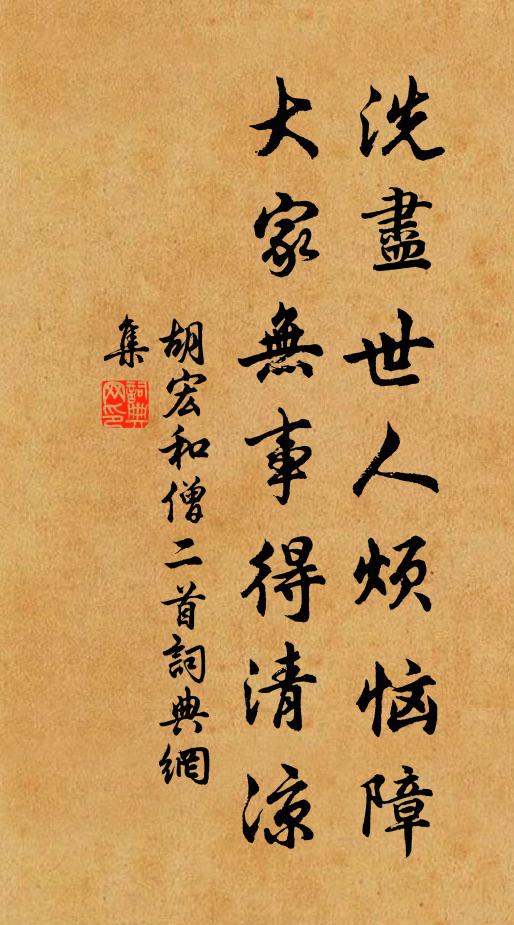 洗盡世人烦恼障
大家無事得清涼
胡宏和僧二首詞典網
集
詞典
网印